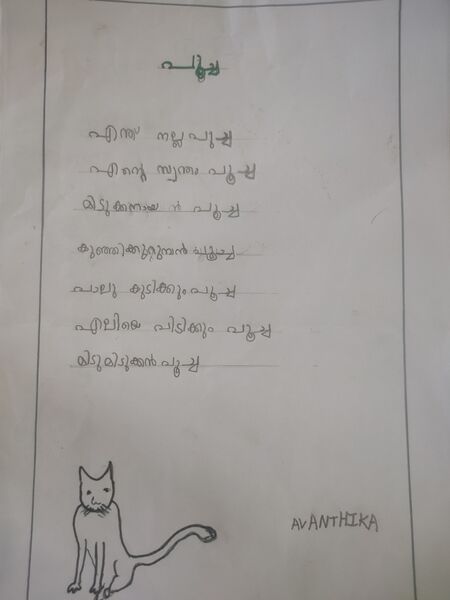 പൂച്ച
എന്ത് നല്ല പൂച്ച
എന്റെ സ്വന്തം പൂച്ച
മിടുക്കനായ ൻ പൂച്ച
കുഞ്ഞിക്കുറുമ്പൻ പൂച്ച
പാലു കുടിക്കും പൂച്ച
എലിയെ പിടിക്കും പൂച്ച
മിടുമിടുക്കൻ പൂച്ച
AVANTHIKA